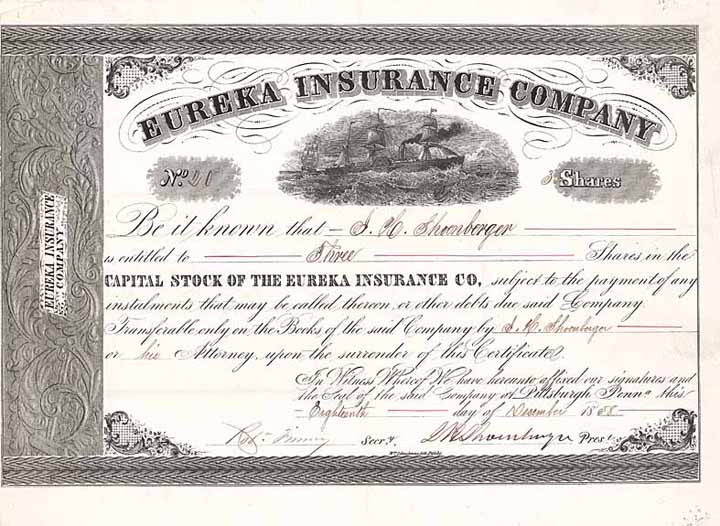 EUREKA INSURANCE COMPANY
No. 21
3 Shares
EUREKA INSURANCE COMPANY
Be it known that J. H. Shoenberger
is entitled to Three Shares in the
CAPITAL STOCK OF THE EUREKA INSURANCE CO, subject to the payment of any
instalments that may be called thereon, or other debts due said Company
Transferable only on the Books of the said Company by J. H. Shoenberger
or his Attorney, upon the surrender of this Certificate.
In Witness Whereof We have hereunto affixed our signatures and
the Seal of the said Company at Pittsburgh Penna. this
Eighteenth day of December 18
Finney Secry. J H Shoenberger Prest.